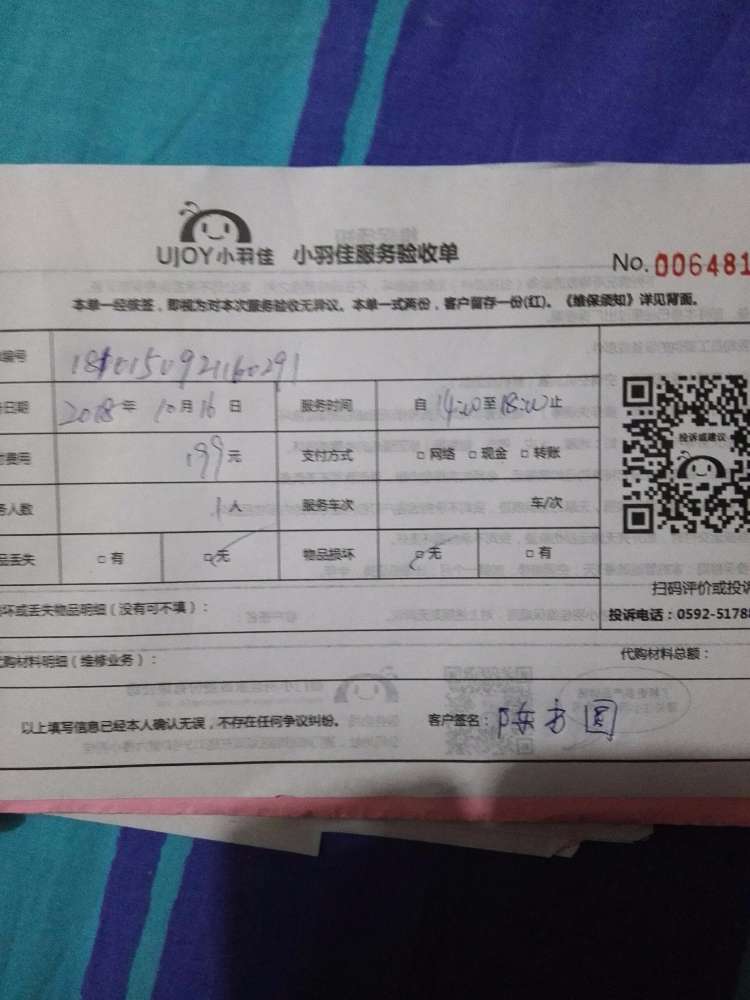 UJOY小羽佳 小羽佳服务验收单
No. 006481
本单一经核签，即视为对本次服务验收无异议。本单一式两份，客户留存一份(红)。《维保须知》详见背面。
编号
日期 2018 年 10 月 16 日 服务时间 自 14:00 至 18:00 止
费用 199 元 支付方式 □ 网络 □ 现金 □ 转账
务人数 1 人 服务车次 车/次
品丢失 □ 有 □ 无 物品损坏 □ 无 □ 有
投诉或建议
扫码评价或投诉
投诉电话：0592-5178
坏或丢失物品明细（没有可不填）：
代购材料明细（维修业务）： 代购材料总额：
以上填写信息已经本人确认无误，不存在任何争议纠纷。 客户签名：